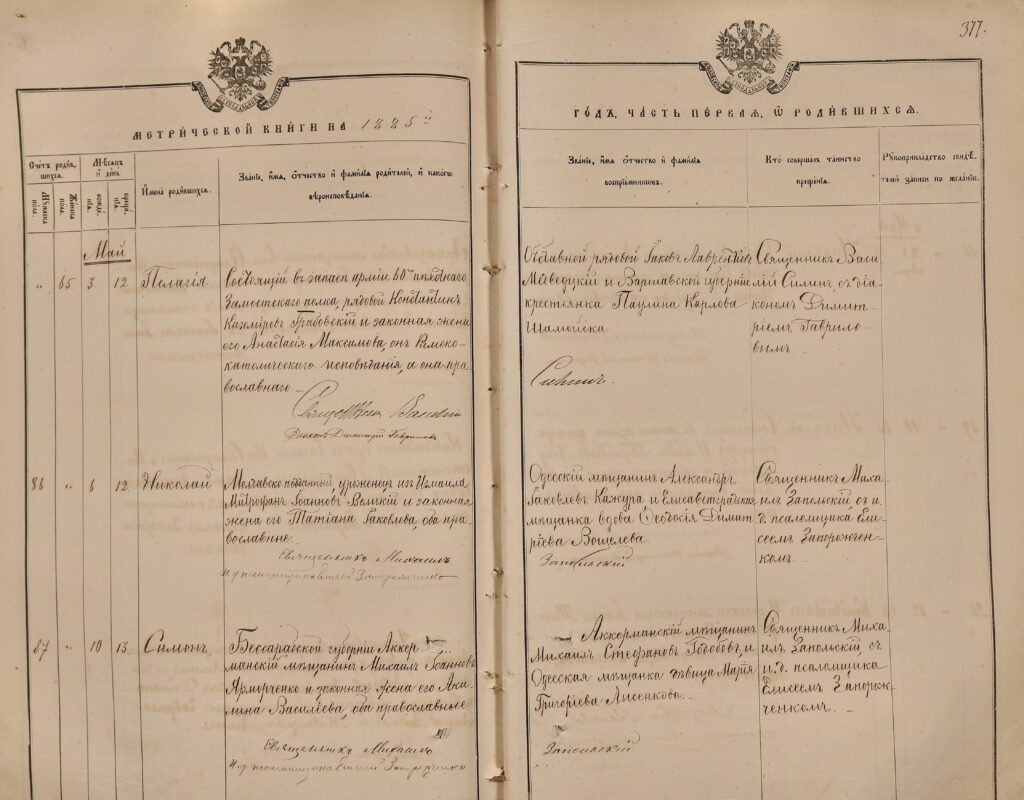 377.
МЕТРИЧЕСКОЙ КНИГИ НА 1885 й
ГОДЪ, ЧАСТЬ ПЕРВАЯ, Ѡ РОДИВШИХСЯ.
Счетъ родив-
шихся.
Мѣсяцъ
и день.
Мужеска
пола.
Женска
пола.
рожде-
нія.
креще-
нія.
Имена родившихся.
Званіе, имя, отчество и фамилія родителей, и какого
вѣроисповѣданія.
Званіе, имя, отчество и фамилія
воспріемниковъ.
Кто совершалъ таинство
крещенія.
Рукоприкладство свидѣ-
телей записи по желанію.
Май
„ 65 3 12 Пелагія
Состоящій в запасѣ арміи 60го пѣхотнаго
Замостскаго полка, рядовой Константинъ
Казиміровъ Грабовскій и законная жена
его Анастасія Максимова, онъ Римско-
католическаго исповѣданія, а она пра-
вославнаго
Священникъ Василій
Діаконъ Димитрій Гавриловъ
Отставной рядовой Іаковъ Лаврентіевъ
и Варшавской губерніи
крестьянка Паулина Карлова
Шамойска
Силинъ.
Священникъ Васи
лій Силинъ, съ діа
кономъ Димит-
ріемъ Гаврило-
вымъ.
86 „ 6 12 Николай
Молдавско подданный, уроженецъ изъ Измаила
Митрофанъ Іоанновъ Великій и законная
жена его Татіана Іаковлева, оба пра-
вославные
Священникъ Михаилъ
Запорожченко
Одесскій мѣщанинъ Александръ
Іаковлевъ Кажура и Елисаветградская
мѣщанка вдова Ѳеодосія Димит
ріева Вощелева.
Запольскій
Священникъ Миха-
илъ Запольскій, съ и.
д. псаломщика Ели-
сеемъ Запорожчен-
комъ.
87 „ 10 13 Симонъ
Бессарабской губерніи Аккер
манскій мѣщанинъ Михаилъ Іоанновъ
Ярморченко и законная жена его Аки-
лина Василіева, оба православные
Священникъ Михаилъ
Аккерманскій мѣщанинъ
Михаилъ Стефановъ и
Одесская мѣщанка дѣвица Марія
Григоріева Лисенкова.
Запольскій
Священникъ Миха-
илъ Запольскій, съ
и. д. псаломщика
Елисеемъ Запорож-
ченкомъ.